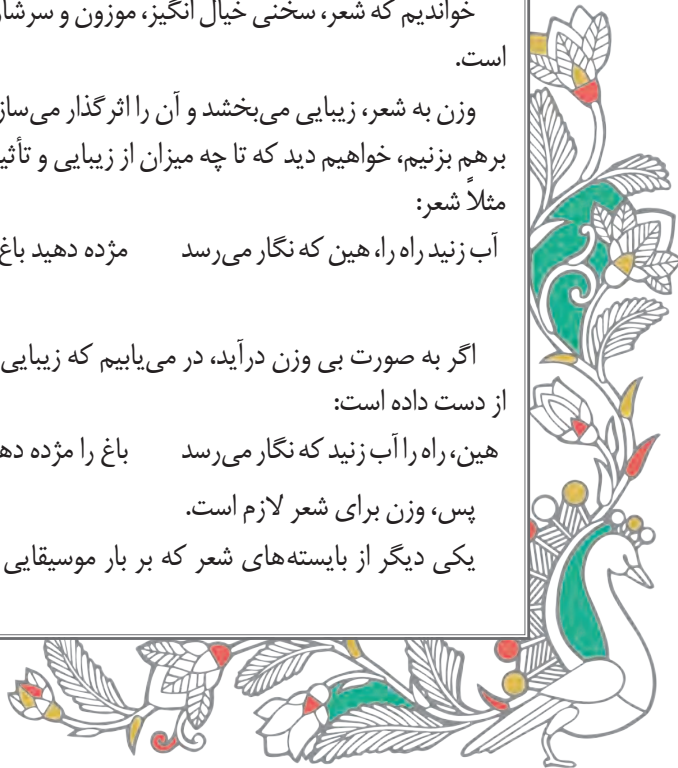 خواندیم که شعر، سخنی خیال انگیز، موزون و سرشار
است.
وزن به شعر، زیبایی می‌بخشد و آن را اثر گذار می‌ساز
برهم بزنیم، خواهیم دید که تا چه میزان از زیبایی و تأثی
مثلاً شعر:
آب زنید راه را، هین که نگار می‌رسد مژده دهید باغ
اگر به صورت بی وزن درآید، در می‌یابیم که زیبایی
از دست داده است:
هین، راه را آب زنید که نگار می‌رسد باغ را مژده ده
پس، وزن برای شعر لازم است.
یکی دیگر از بایسته‌های شعر که بر بار موسیقایی